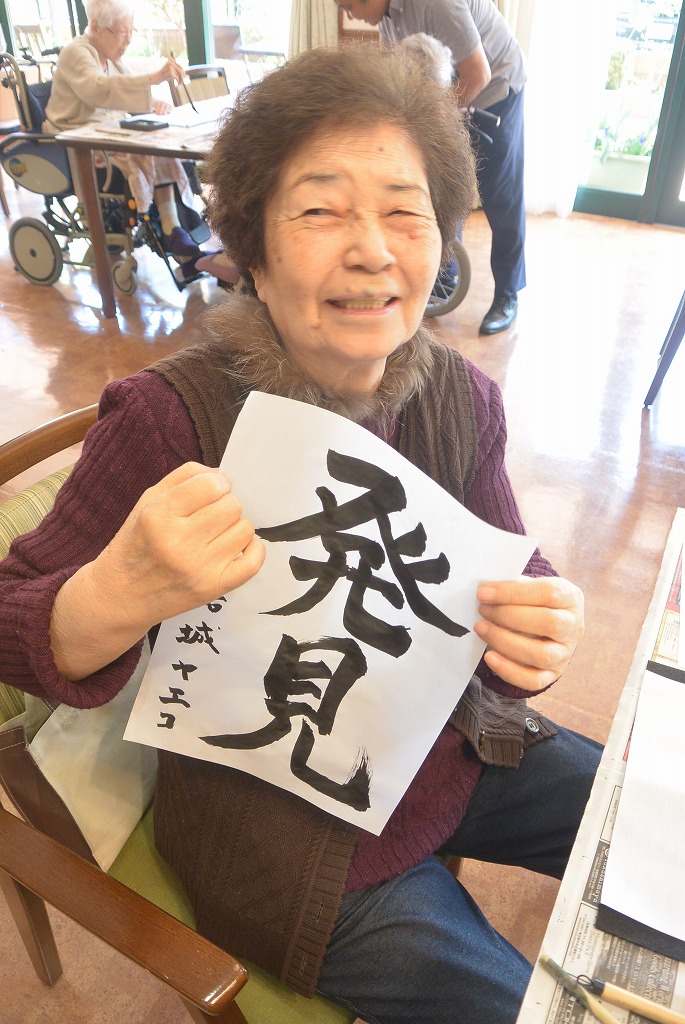 発見
城ヤエコ